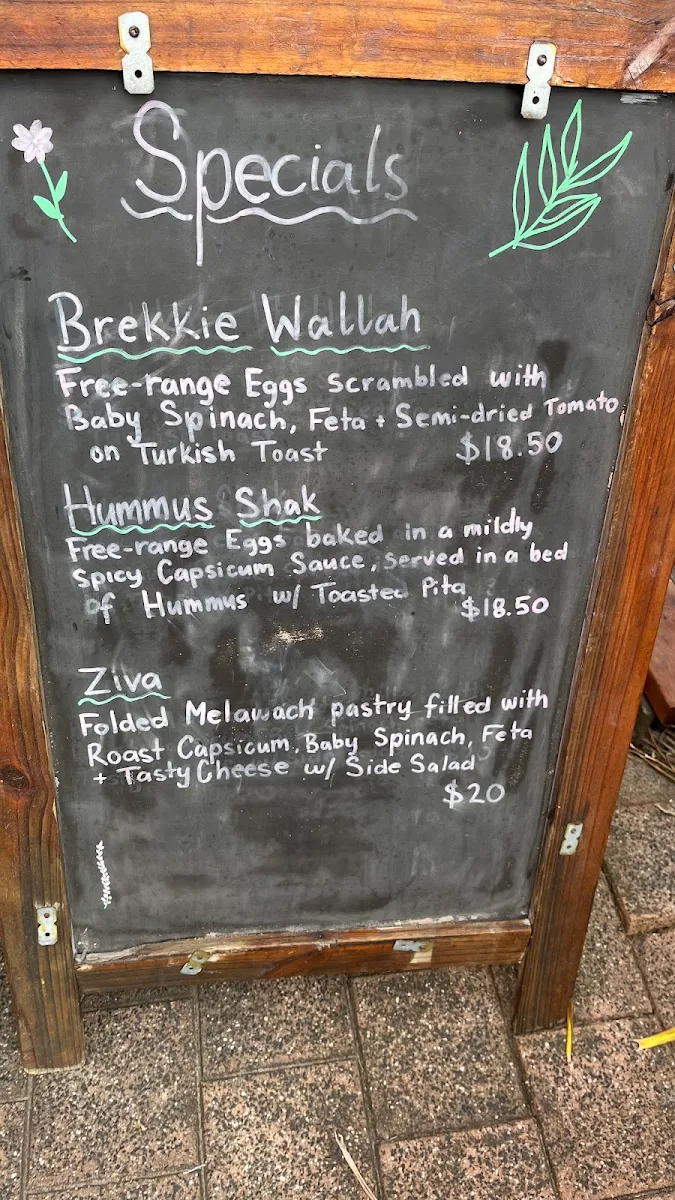 Specials
Brekkie Wallah
Free-range Eggs scrambled with
Baby Spinach, Feta + Semi-dried Tomato
on Turkish Toast $18.50
Hummus Shak
Free-range Eggs baked in a mildly
spicy Capsicum Sauce, served in a bed
of Hummus w/ Toasted Pita
$18.50
Ziva
Folded Melawach pastry filled with
Roast Capsicum, Baby Spinach, Feta
+ Tasty Cheese w/ Side Salad
$20